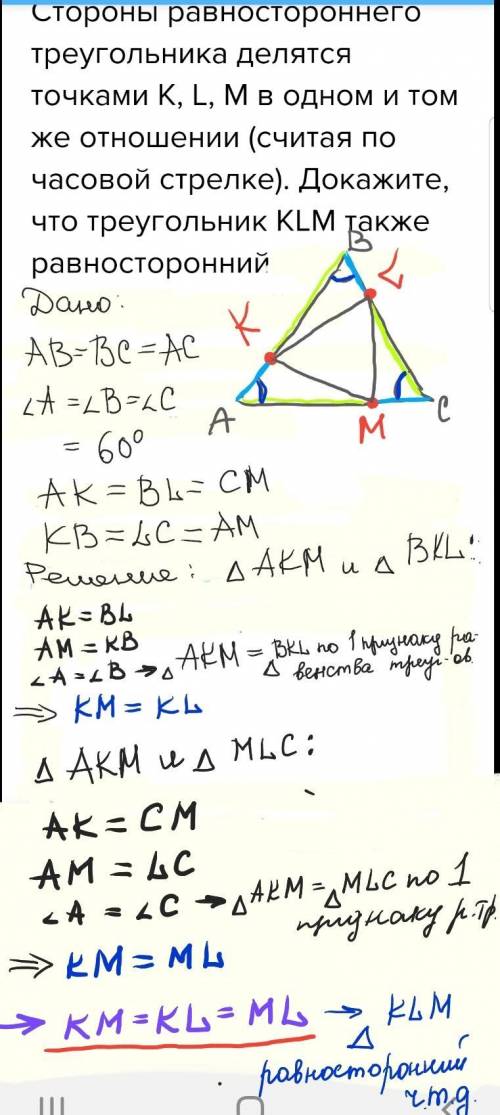 Стороны равностороннего
треугольника делятся
точками K, L, M в одном и том
же отношении (считая по
часовой стрелке). Докажите,
что треугольник KLM также
равносторонний
B
L
K
A
M
C
Дано:
AB=BC=AC
∠A=∠B=∠C
= 60°
AK = BL = CM
KB = LC = AM
Решение: △ AKM и △ BKL:
AK=BL
AM = KB
∠A=∠B → △ AKM = △ BKL по 1 признаку ра-
венства треуг-ов
⇒ KM = KL
△ AKM и △ MLC:
AK = CM
AM = LC
∠A = ∠C → △ AKM = △ MLC по 1
признаку р.тр.
⇒ KM = ML
→ KM=KL=ML → △ KLM
равносторонний
ч.т.д.